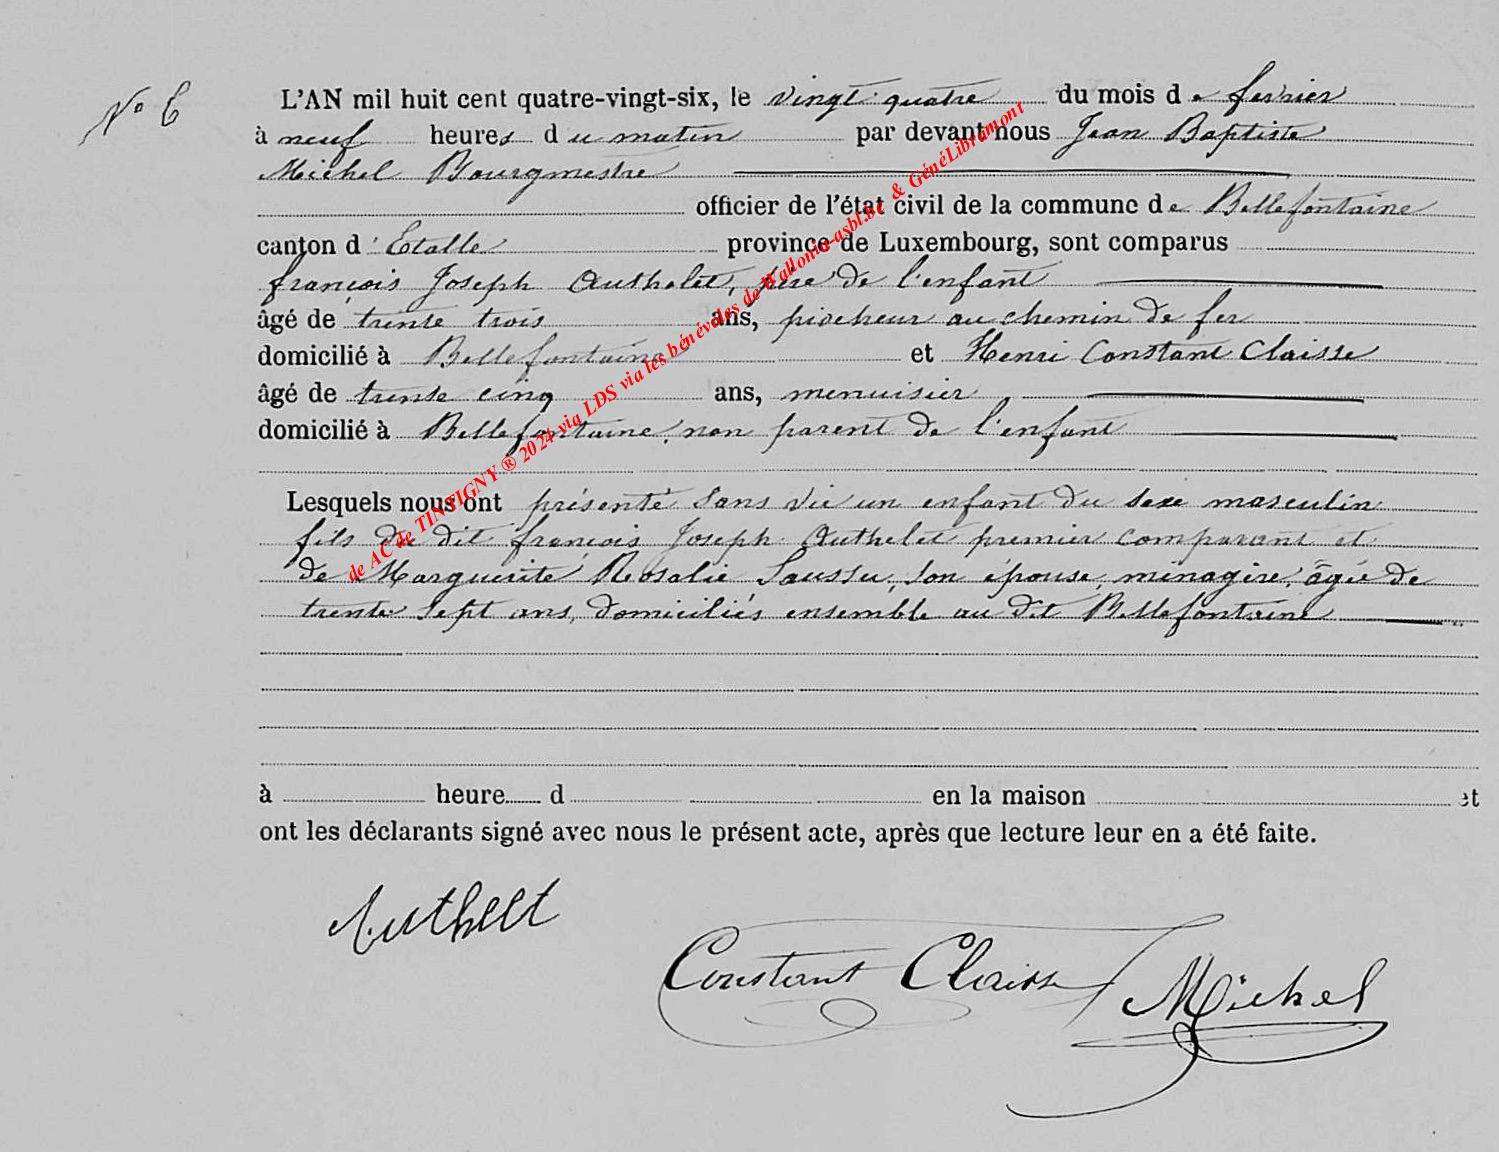 N° 6
L'AN mil huit cent quatre-vingt-six, le vingt quatre du mois de fevrier
à neuf heures du matin par devant nous Jean Baptiste
Michel Bourgmestre
officier de l'état civil de la commune de Bellefontaine
canton d'Etalle province de Luxembourg, sont comparus
françois Joseph Authelet, père de l'enfant
âgé de trente trois ans, piocheur au chemin de fer
domicilié à Bellefontaine et Henri Constant Claisse
âgé de trente cinq ans, menuisier
domicilié à Bellefontaine, non parent de l'enfant
Lesquels nous ont présenté sans vie un enfant du sexe masculin
fils du dit françois Joseph Authelet premier comparant et
de Marguerite Rosalie Saussu, son épouse, ménagère, âgée de
trente sept ans, domiciliés ensemble au dit Bellefontaine
à heure d en la maison et
ont les déclarants signé avec nous le présent acte, après que lecture leur en a été faite.
Authelet
Constant Claisse
Michel
de AC de TINTIGNY ® 2024 via LDS via les bénévoles de Wallonia-asbl.be & GénéLibramont